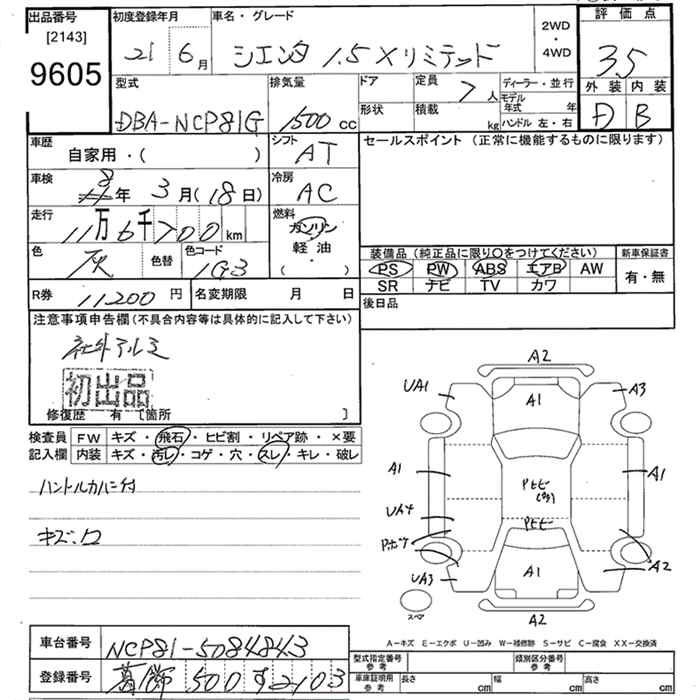 出品番号
[2143]
9605
初度登録年月
21 6月
車名・グレード
シエンタ 1.5 X リミテッド
2WD
・
4WD
評価点
3.5
外装 内装
D B
型式
DBA-NCP81G
排気量
1500 cc
ドア
形状
定員
7人
積載
kg
ディーラー・並行
モデル年式 年
ハンドル 左・右
車歴
自家用・( )
シフト
AT
セールスポイント (正常に機能するものに限ります)
車検
8年 3月(18日)
冷房
AC
走行
11万6千700km
燃料
ガソリン
軽油
( ・ )
色
灰
色替
色コード
1G3
装備品 (純正品に限り○をつけてください)
PS PW ABS エアB AW
SR ナビ TV カワ
新車保証書
有・無
R券
11200円
名変期限 月 日
後日品
注意事項申告欄(不具合内容等は具体的に記入して下さい)
社外アルミ
初出品
修復歴 有 〔箇所 〕
検査員
記入欄
FW キズ・飛石・ヒビ割・リペア跡・×要
内装 キズ・汚レ・コゲ・穴・スレ・キレ・破レ
ハンドルカバー付
キズ.凹
A2
UA1
A3
A1
A1
A1
Pヒビ
UA4
Pヒビ
Pボケ
A2
UA3
A1
スペア
A2
A-キズ E-エクボ U-凹み W-補修跡 S-サビ C-腐食 XX-交換済
車台番号
NCP81-5084843
登録番号
葛飾 500 す 2103
型式指定番号
参考
類別区分番号
参考
車庫証明用
参考
長さ cm
幅 cm
高さ cm